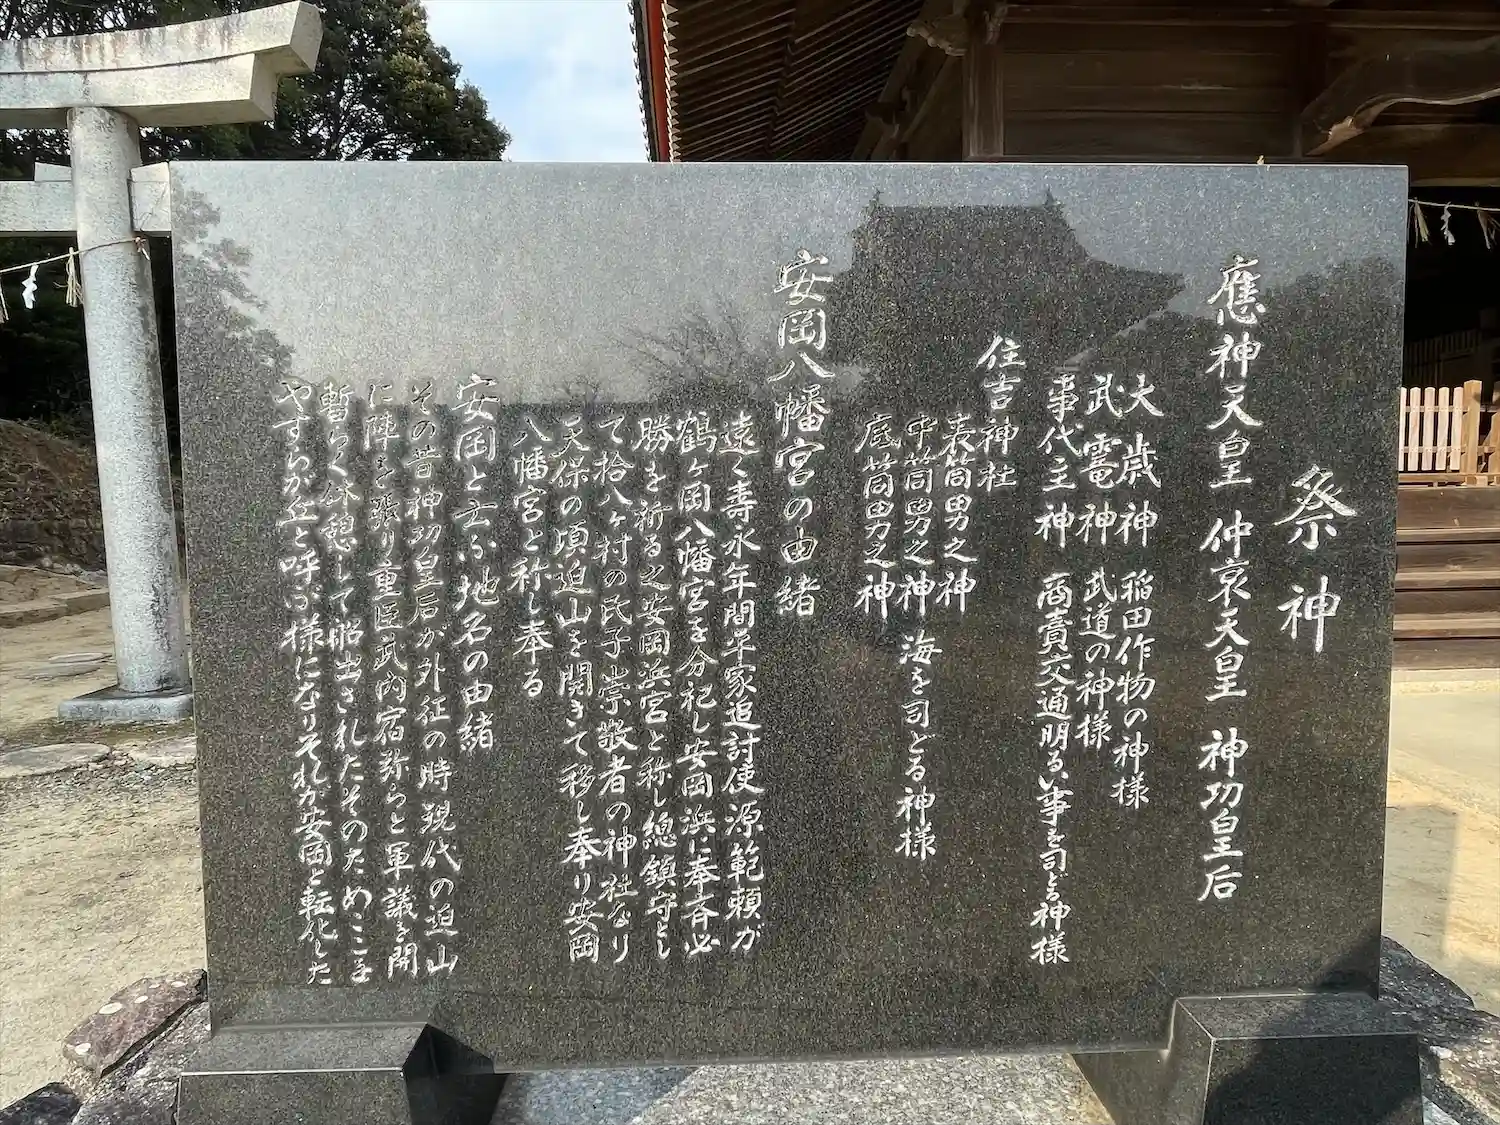 祭神
應神天皇 仲哀天皇 神功皇后
大歳神 稲田作物の神様
武甕神 武道の神様
事代主神 商賣交通明るい事を司どる神様
住吉神社
表筒男之神
中筒男之神 海を司どる神様
底筒男之神
安岡八幡宮の由緒
遠く壽永年間平家追討使源範頼が
鶴ヶ岡八幡宮を分祀し安岡浜に奉斉必
勝を祈る之安岡浜宮と称し總鎮守とし
て拾八ヶ村の氏子崇敬者の神社なり
天保の頃迫山を開きて移し奉り安岡
八幡宮と称し奉る
安岡と云ふ地名の由緒
その昔神功皇后が外征の時現代の迫山
に陣を張り重臣武内宿弥らと軍議を開
暫らく休憩して船出されたそのためここを
やすらか丘と呼ぶ様になりそれが安岡と転化した